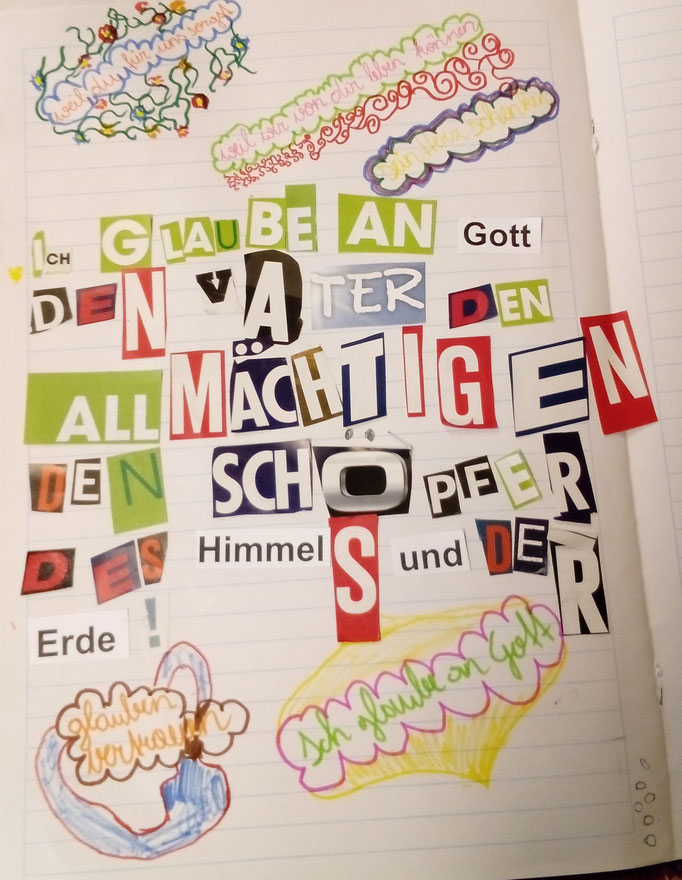 weil du für uns sorgst
weil wir von dir leben können
dein Herz schenken
ICH GLAUBE AN Gott
DEN VATER DEN
ALLMÄCHTIGEN
DEN SCHÖPFER
DES HimmelS und DER
Erde !
glauben
vertrauen
Ich glaube an Gott